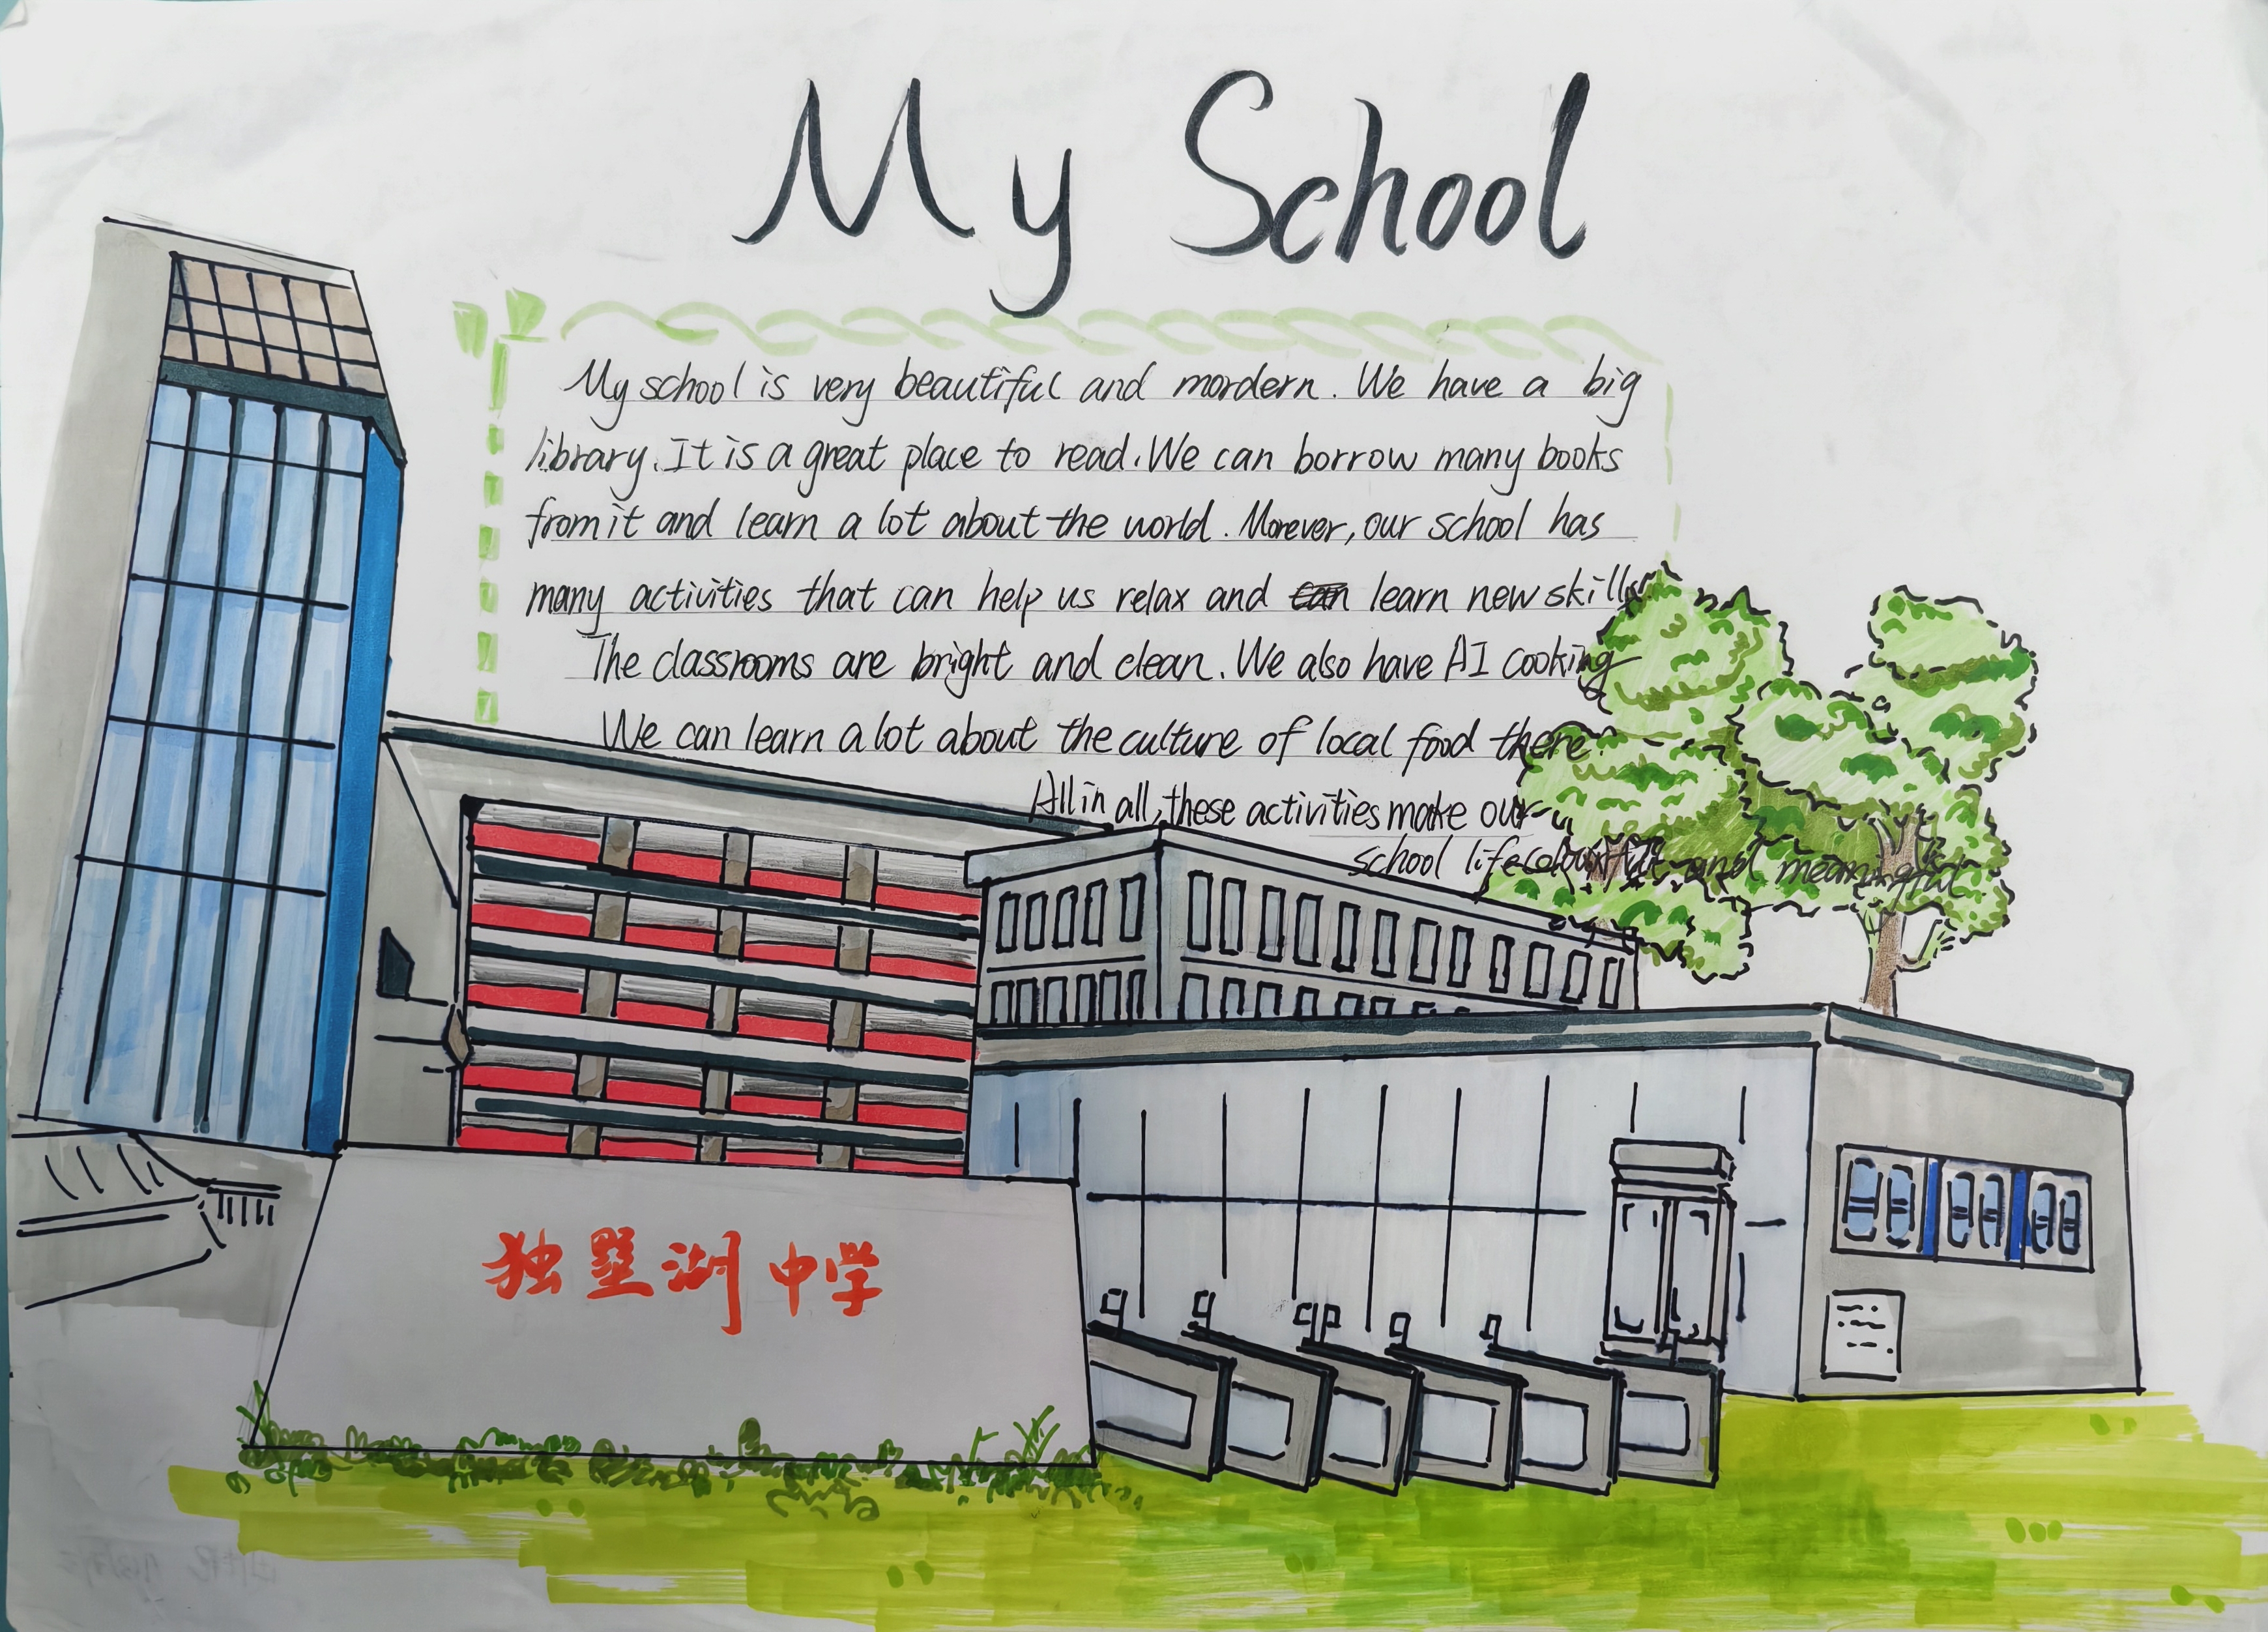 My School
My school is very beautiful and mordern. We have a big
library. It is a great place to read. We can borrow many books
from it and learn a lot about the world. Morever, our school has
many activities that can help us relax and learn new skills.
The classrooms are bright and clean. We also have AI cooking
We can learn a lot about the culture of local food there.
All in all, these activities make our
school life colourful and meaningful
独墅湖中学